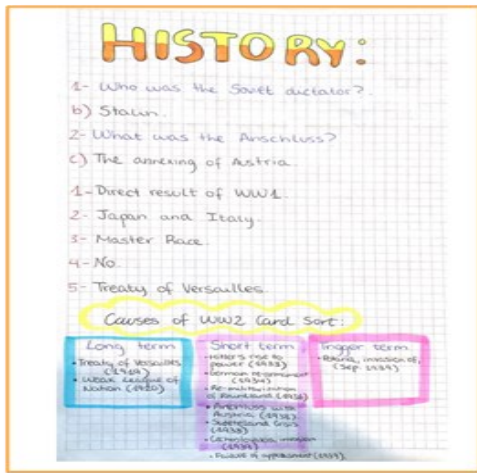 HISTORY:
1- Who was the Soviet dictator?.
b) Stalin.
2- What was the Anschluss?
c) The annexing of Austria.
1- Direct result of WW1.
2- Japan and Italy.
3- Master Race.
4- No.
5- Treaty of Versailles.
Causes of WW2 Card Sort:
Long term
• Treaty of Versailles
(1919)
• Weak League of
Nation (1920)
Short term
• Hitler's rise to
power (1933)
• German rearmament
(1934)
(1936)
• Anschluss with
Austria (1938)
• Sudetenland Crisis
(1938)
invasion
(1939)
• Failure of appeasement (1939).
Trigger term
• Poland, invasion of,
(Sep. 1939)